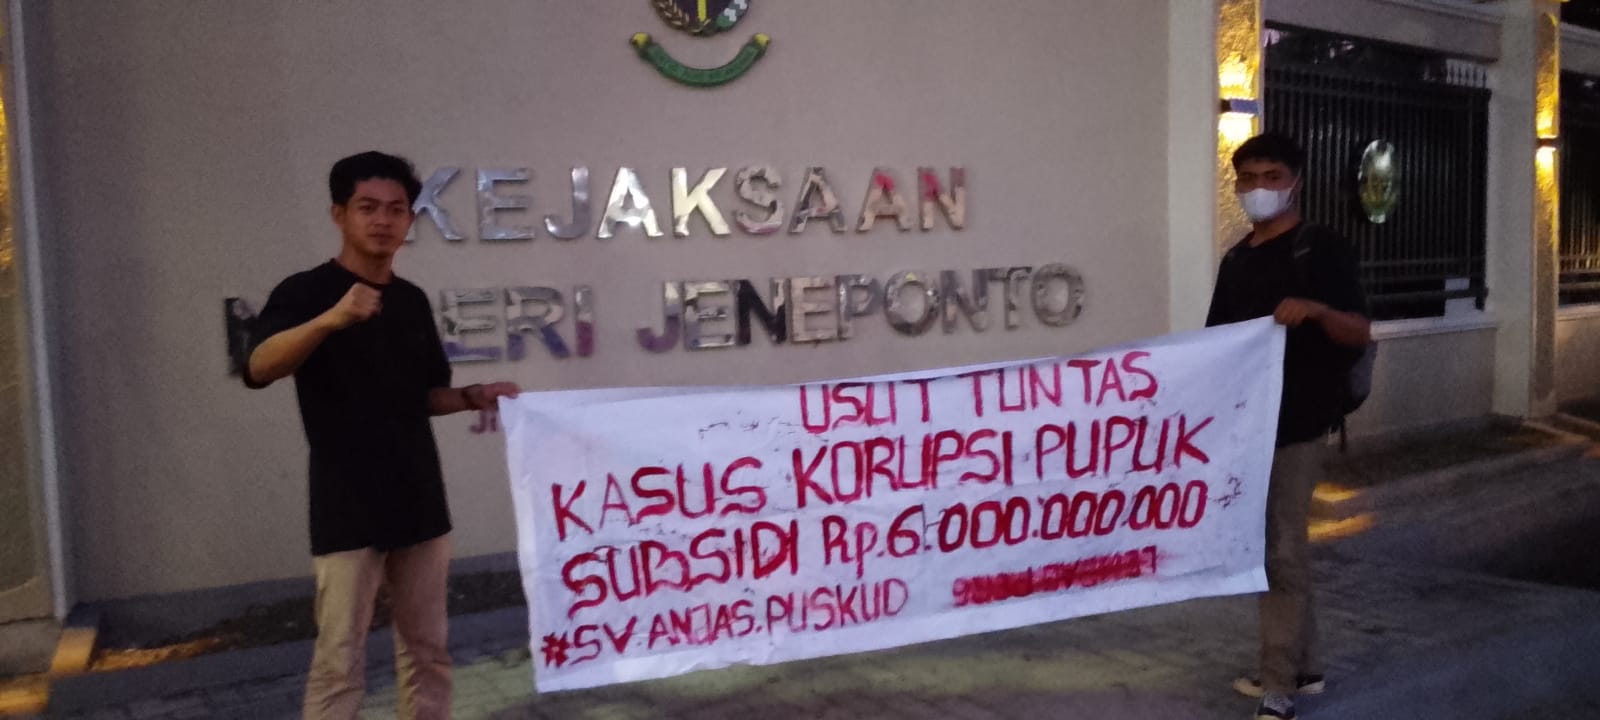 KEJAKSAAN
ERI JENEPONTO
USUT TUNTAS
KASUS KORUPSI PUPUK
SUBSIDI Rp.6.000.000.000
#SV.ANJAS.PUSKUD